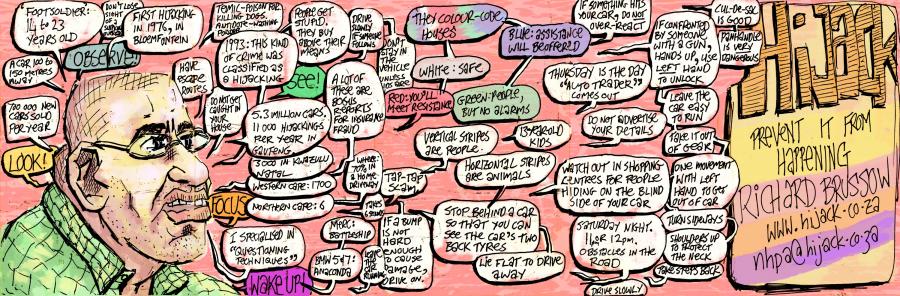 FOOTSOLDIER:
14 to 23
YEARS OLD
DON'T LOSE
SIGHT OF
FIRST HIJACKING
IN 1976, IN
BLOEMFONTEIN
A CAR 100 to
150 METRES
AWAY
OBSERVE!
700 000 NEW
CARS SOLD
PER YEAR
LOOK!
HAVE
ESCAPE
ROUTES
DO NOT GET
CAUGHT AT
YOUR
HOUSE
TEMIC-POISON FOR
KILLING DOGS.
1993: THIS KIND
OF CRIME WAS
CLASSIFIED AS
a HIJACKING
5.3 MILLION CARS,
11 000 HIJACKINGS
PER YEAR IN
GAUTENG
3000 IN KWAZULU
NATAL
WESTERN CAPE: 1700
NORTHERN CAPE: 6
FOCUS
I SPECIALISED IN
"QUESTIONING
TECHNIQUES"
WAKE UP!
PEOPLE GET
STUPID.
THEY BUY
ABOVE THEIR
MEANS
SEE!
A LOT OF
THESE ARE
BOGUS
REPORTS
FOR INSURANCE
FRAUD
DRIVE
SLOWLY IF
SOMEONE
FOLLOWS
DON'T
STAY IN
THE
VEHICLE
UNLESS
KIDS ARE
WHERE:
70% IN
A HOME
DRIVEWAY
TAP-TAP
SCAM
TAKES
MERC:
BATTLESHIP
BMW 547:
ANACONDA
LEAVE
THE
CAR
RUNNING
IF A BUMP
IS NOT
HARD
ENOUGH
TO CAUSE
DAMAGE,
DRIVE ON.
THEY COLOUR-CODE
HOUSES
WHITE: SAFE
RED: YOU'LL
MEET RESISTANCE
GREEN: PEOPLE,
BUT NO ALARMS
BLUE: ASSISTANCE
WILL BE OFFERED
VERTICAL STRIPES
ARE PEOPLE
13 YEAR OLD
KIDS
HORIZONTAL STRIPES
are ANIMALS
STOP BEHIND A CAR
SO THAT YOU CAN
SEE THE CAR'S TWO
BACK TYRES
LIE FLAT TO DRIVE
AWAY
IF SOMETHING HITS
YOUR CAR, DO NOT
OVER-REACT
THURSDAY IS THE DAY
"AUTO TRADER"
COMES OUT
DO NOT ADVERTISE
YOUR DETAILS
WATCH OUT IN SHOPPING
CENTRES FOR PEOPLE
HIDING ON THE BLIND
SIDE OF YOUR CAR
SATURDAY NIGHT.
12pm.
OBSTACLES IN THE
ROAD
DRIVE SLOWLY
IF CONFRONTED
BY SOMEONE
WITH A GUN,
HANDS UP, USE
LEFT HAND
to UNLOCK
CUL-DE-SAC
IS GOOD
PANHANDLE
IS VERY
DANGEROUS
LEAVE THE
CAR EASY
TO RUN
TAKE IT OUT
OF GEAR
ONE MOVEMENT
WITH LEFT
HAND TO GET
OUT OF CAR
TURN SIDEWAYS
SHOULDERS UP
TO PROTECT
THE NECK
TAKE STEPS BACK
HIJACK
PREVENT IT FROM
HAPPENING
RICHARD BRUSSOW
www.hijack.co.za
nhpa@hijack.co.za